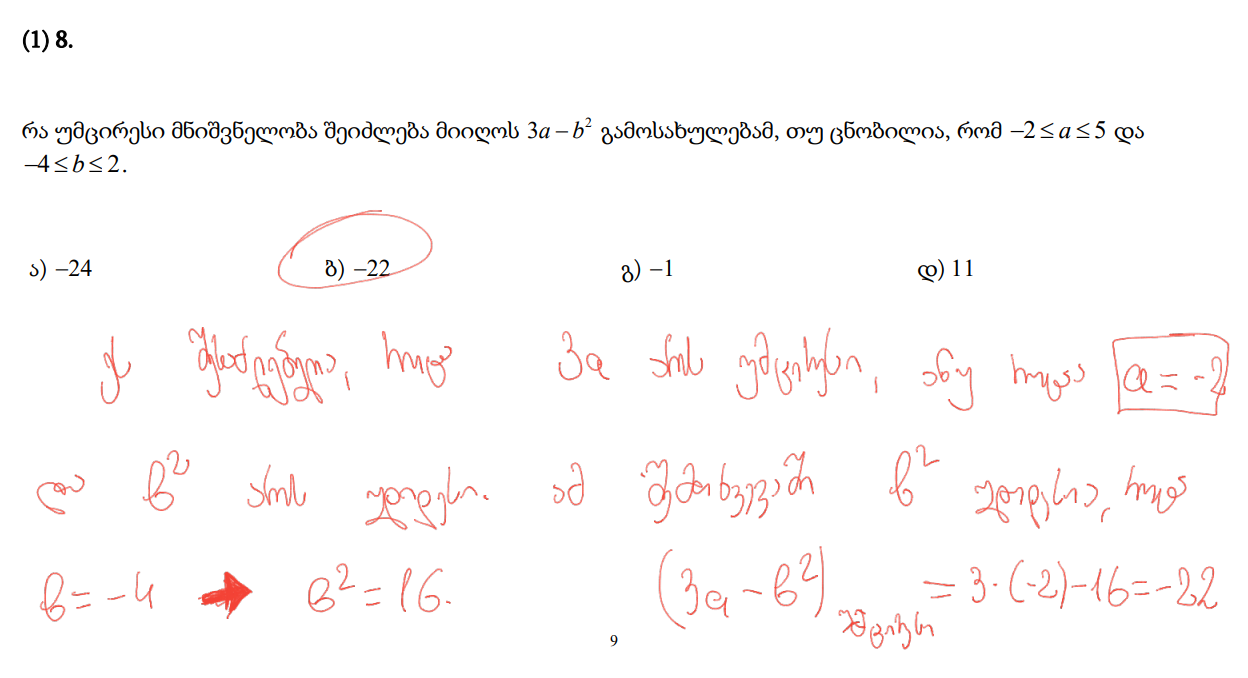 (1) 8.
რა უმცირესი მნიშვნელობა შეიძლება მიიღოს 3a – b² გამოსახულებამ, თუ ცნობილია, რომ –2 ≤ a ≤ 5 და
–4 ≤ b ≤ 2.
ა) –24 ბ) –22 გ) –1 დ) 11
ეს შესაძლებელია, როცა 3a არის უმცირესი, ანუ როცა a = -2
და b² არის უდიდესი. ამ შემთხვევაში b² უდიდესია, როცა
b = -4 → b² = 16. (3a - b²) უმცირესი = 3·(-2)-16=-22
9